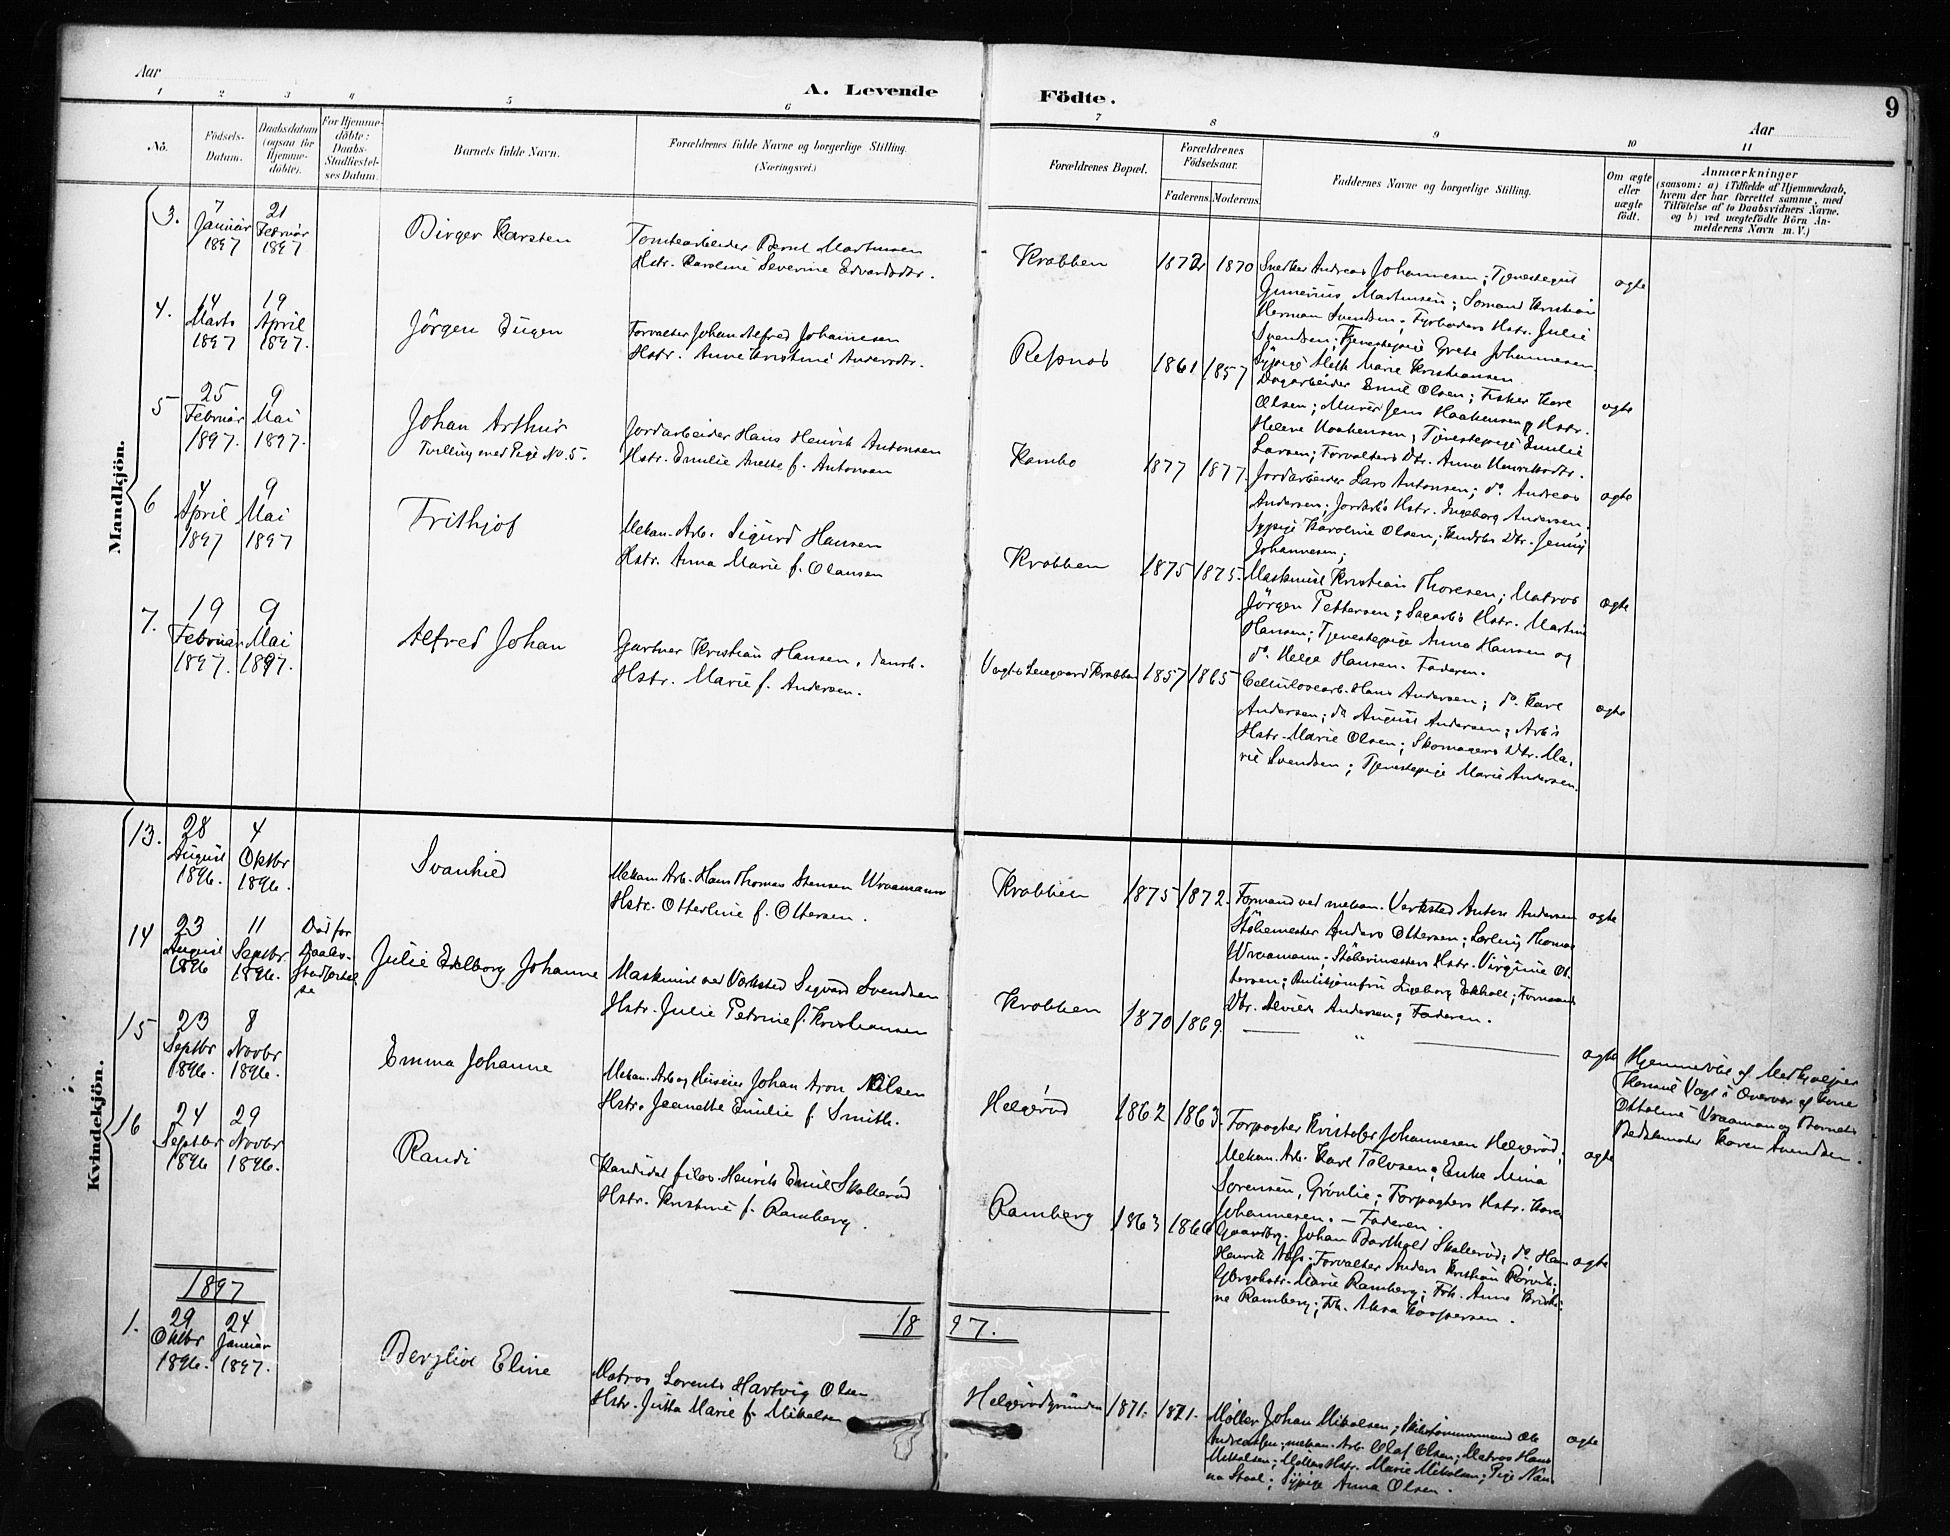 Aar
A. Levende
Födte.
9
Aar
1 2 3 4 5 6 7 8 9 10 11
No.
Födsels-
Datum.
Daabsdatum
(ogsaa for
Hjemme-
döbte).
For Hjemme-
döbte:
Daabs-
Stadfæstel-
ses Datum.
Barnets fulde Navn.
Forældrenes fulde Navne og borgerlige Stilling.
(Næringsvei.)
Forældrenes Bopæl.
Forældrenes
Födselsaar.
Faderens. Moderens.
Faddernes Navne og borgerlige Stilling.
Om ægte
eller
uægte
födt.
Anmærkninger
(saasom: a) i Tilfælde af Hjemmedaab,
hvem der har forrettet samme, med
Tilföielse af to Daabsvidners Navne.
og b) ved uegtefödte Börn An-
melderens Navn m. V.)
Mandkjön.
3.
7
Januar
1897
21
Februar
1897
Birger Karsten
Tomtearbeider Bernt Martinsen
Hstr. Karoline Severine Edvardsdtr.
Krabben
1872 1870
Snedker Andreas Johannesen; Tjenestegut
Gunerius Martinsen; Sømand Kristian
Herman Svendsen; Fyrböders Hstr. Julie
Svendsen; Tjenestepige Grete Johannesen
Sypige Meth Marie Kristiansen.
ægte
4.
14
Marts
1897
19
April
1897.
Jörgen Eugen
Forvalter Johan Alfred Johannesen
Hstr. Anne Kristine Andersdtr.
Refsnæs
1861 1857
Dagarbeider Emil Olsen; Fisker Karl
Olsen; Murer Jens Haakensen og Hstr.
Helene Haakensen; Tjenestepige Emilie
Larsen; Forvalters Dtr. Anna Henriksdtr.
ægte
5
25
Februar
1897.
9
Mai
1897.
Johan Arthur
Tvilling med Pige No. 5.
Jordarbeider Hans Henrik Antonsen
Hstr. Emilie Anette f. Antonsen
Kambo
1877 1877.
Jordarbeider Lars Antonsen; do. Andreas
Andersen; Jordarb's Hstr. Ingeborg Andersen;
Sypige Karoline Olsen; Dtr. Jenny
Johannesen;
ægte
6
4
April
1897
9
Mai
1897
Frithjof
Mekan. Arb. Sigurd Hansen
Hstr. Anna Marie f. Olausen
Krabben
1875 1875.
Maskinist Kristian Thoresen; Matros
Jörgen Pettersen; Sagarb's Hstr. Martine
Hansen; Tjenestepige Anna Hansen og
do. Helga Hansen. Faderen.
ægte
7.
19
Februar
1897.
9
Mai
1897.
Alfred Johan
Gartner Kristian Hansen, dansk.
Hstr. Marie f. Andersen.
Vogts Leiegaard Krabben
1857 1865
Cellulosearb. Hans Andersen; do. Karl
Andersen; do August Andersen; Arb's
Hstr. Marie Olsen; Skomagers Dtr. Ma-
rie Svendsen; Tjenestepige Marie Andersen.
ægte
Kvindekjön.
13.
28
August
1896.
4
Oktbr
1896.
Svanhild
Mekan. Arb. Hans Thomas Stensen Wraamann
Hstr. Otterline f. Ottersen.
Krabben
1875 1872.
Formand ved mekan. Verksted Anders Andersen
Stöbemester Anders Ottersen; Lærling Thomas
Wraamann; Stöberimesters Hstr. Virginie Ot-
tersen; Butikjomfru Ingeborg Ekholt; Formands
Dtr. Andersen; Faderen.
ægte
14
23
August
1896
11
Septbr
1896.
Död før
Daabs-
Stadfæstel-
se
Julie Edelborg Johanne
Maskinist ved Værksted Sigvard Svendsen
Hstr. Julie Petrine f. Kristiansen
Krabben
1870 1869.
"
ægte
Hjemmedöbt af Medhjælper
Konsul Vogt i Overvær af Kone
Othaline Vraaman og Barnets
Bedstemoder Karen Svendsen.
15
23
Septbr
1896.
8
Novbr
1896.
Emma Johanne
Mekan. Arb. og Huseier Johan Aron Nilsen
Hstr. Jeanette Emilie f. Smith.
Helgeröd
1862 1863.
Forpagter Kristofer Johannesen Helgeröd;
Mekan. Arb. Karl Tolvsen; Enke Mina
Sorensen, Grönlie; Forpagters Hstr. Karen
Johannesen. – Faderen.
ægte
16
24
Septbr
1896
29
Novbr
1896.
Randi
Kandidat filos. Henrik Emil Skallerød
Hstr. Kristine f. Ramberg.
Ramberg
1863 1866
Gaardbr. Johan Barthold Skallerød; do. Hans
Henrik; Forvalter Anders Kristian Rörvik;
Gbrgshstr. Marie Ramberg; Frk. Anne Kristi-
ne Ramberg; Frk. Aksa Kaspersen.
ægte
1897
18 97.
1.
29
Oktbr
1896.
24
Januar
1897.
Bergliot Eline
Matros Lorents Hartvig Olsen
Hstr. Jutta Marie f. Mikalsen
Helgerödgrunden
1871. 1871.
Møller Johan Mikalsen; Skibstømmermand Ole
Andreassen; mekan. Arb. Olaf Olsen; Matros Hans
Mikalsen; Møllers Hstr. Marie Mikalsen; Pige Nan-
na Staal; Sypige Anna Olsen.
ægte